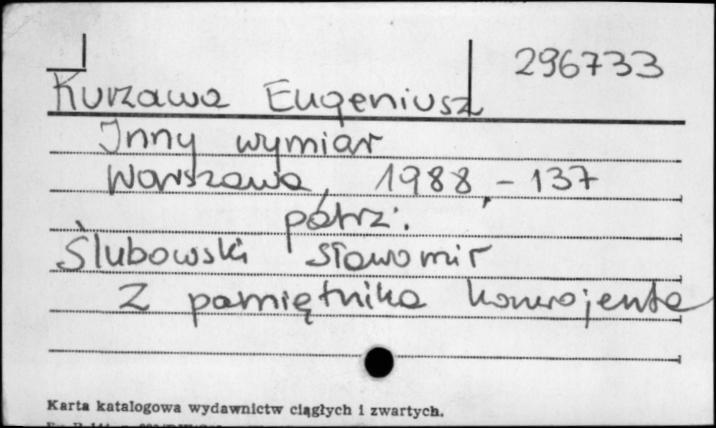 296733
Kurzawa Eugeniusz
Inny wymiar
Warszawa, 1988, - 137
patrz:
Ślubowski Sławomir
Z pamiętnika konwojenta
Karta katalogowa wydawnictw ciągłych i zwartych.